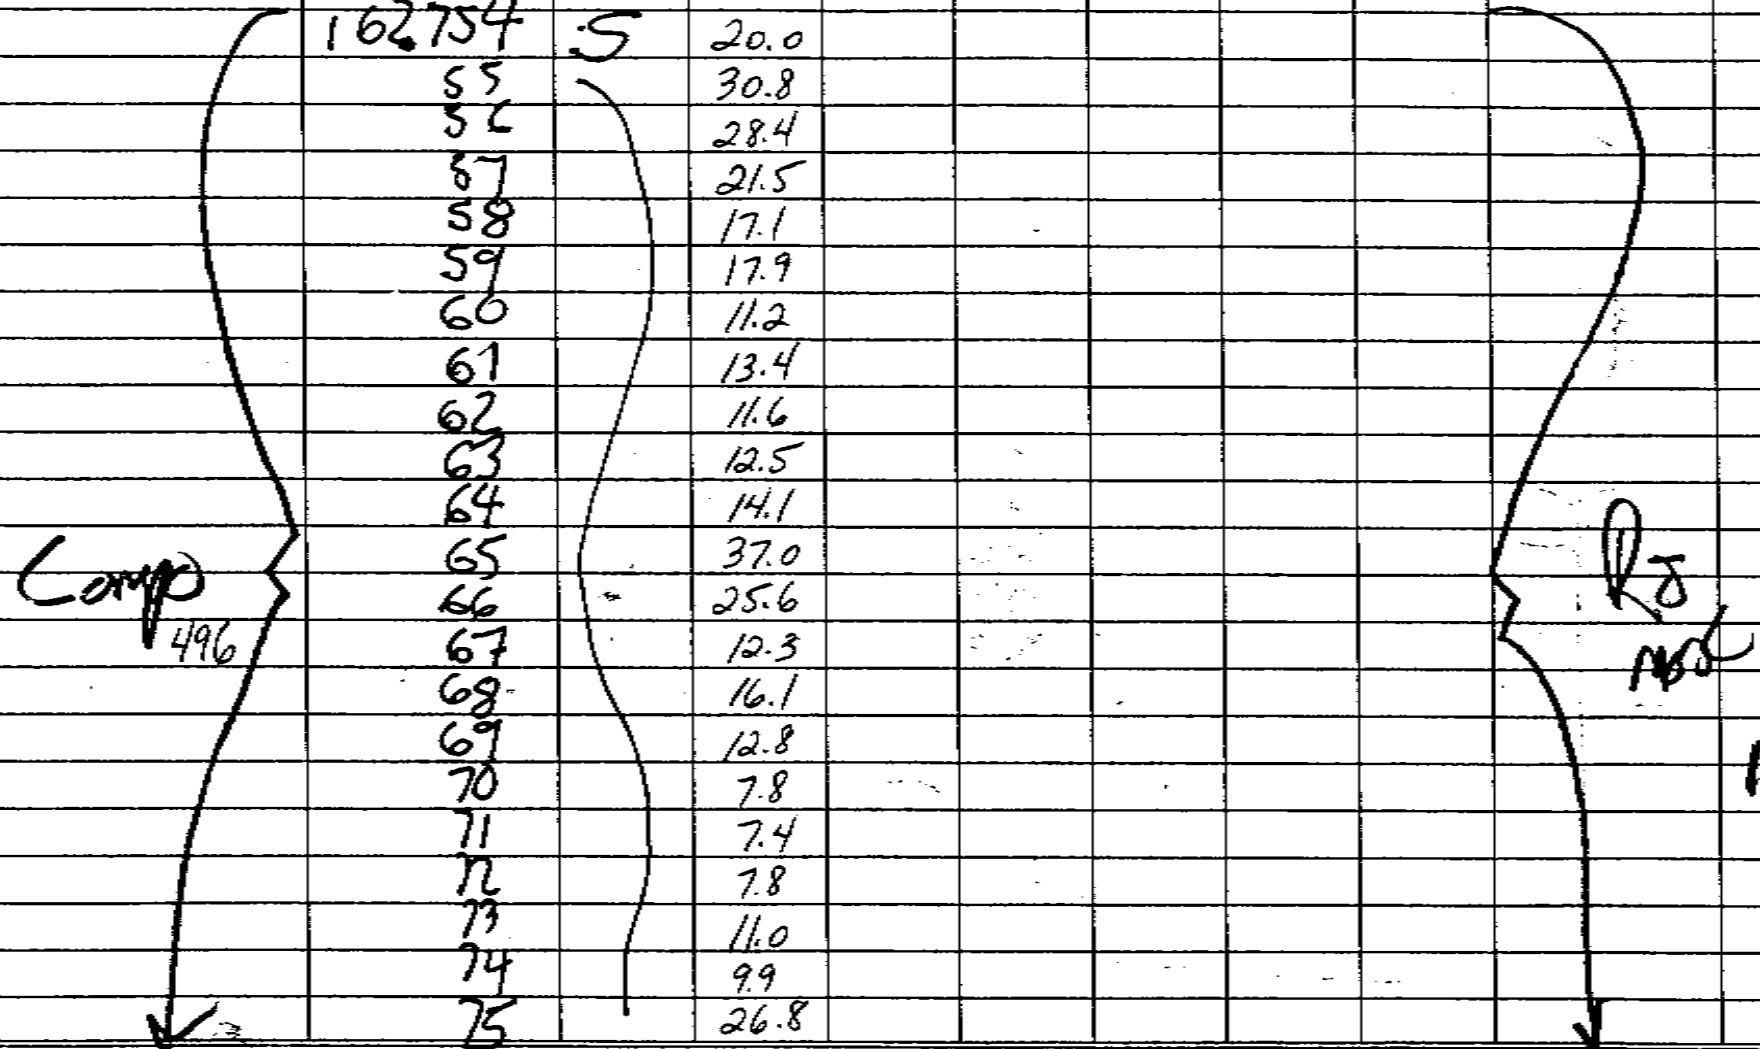 162754 S 20.0
55 30.8
56 28.4
57 21.5
58 17.1
59 17.9
60 11.2
61 13.4
62 11.6
63 12.5
64 14.1
Comp 65 37.0
66 25.6
496 67 12.3
68 16.1
69 12.8
70 7.8
71 7.4
72 7.8
73 11.0
74 9.9
75 26.8